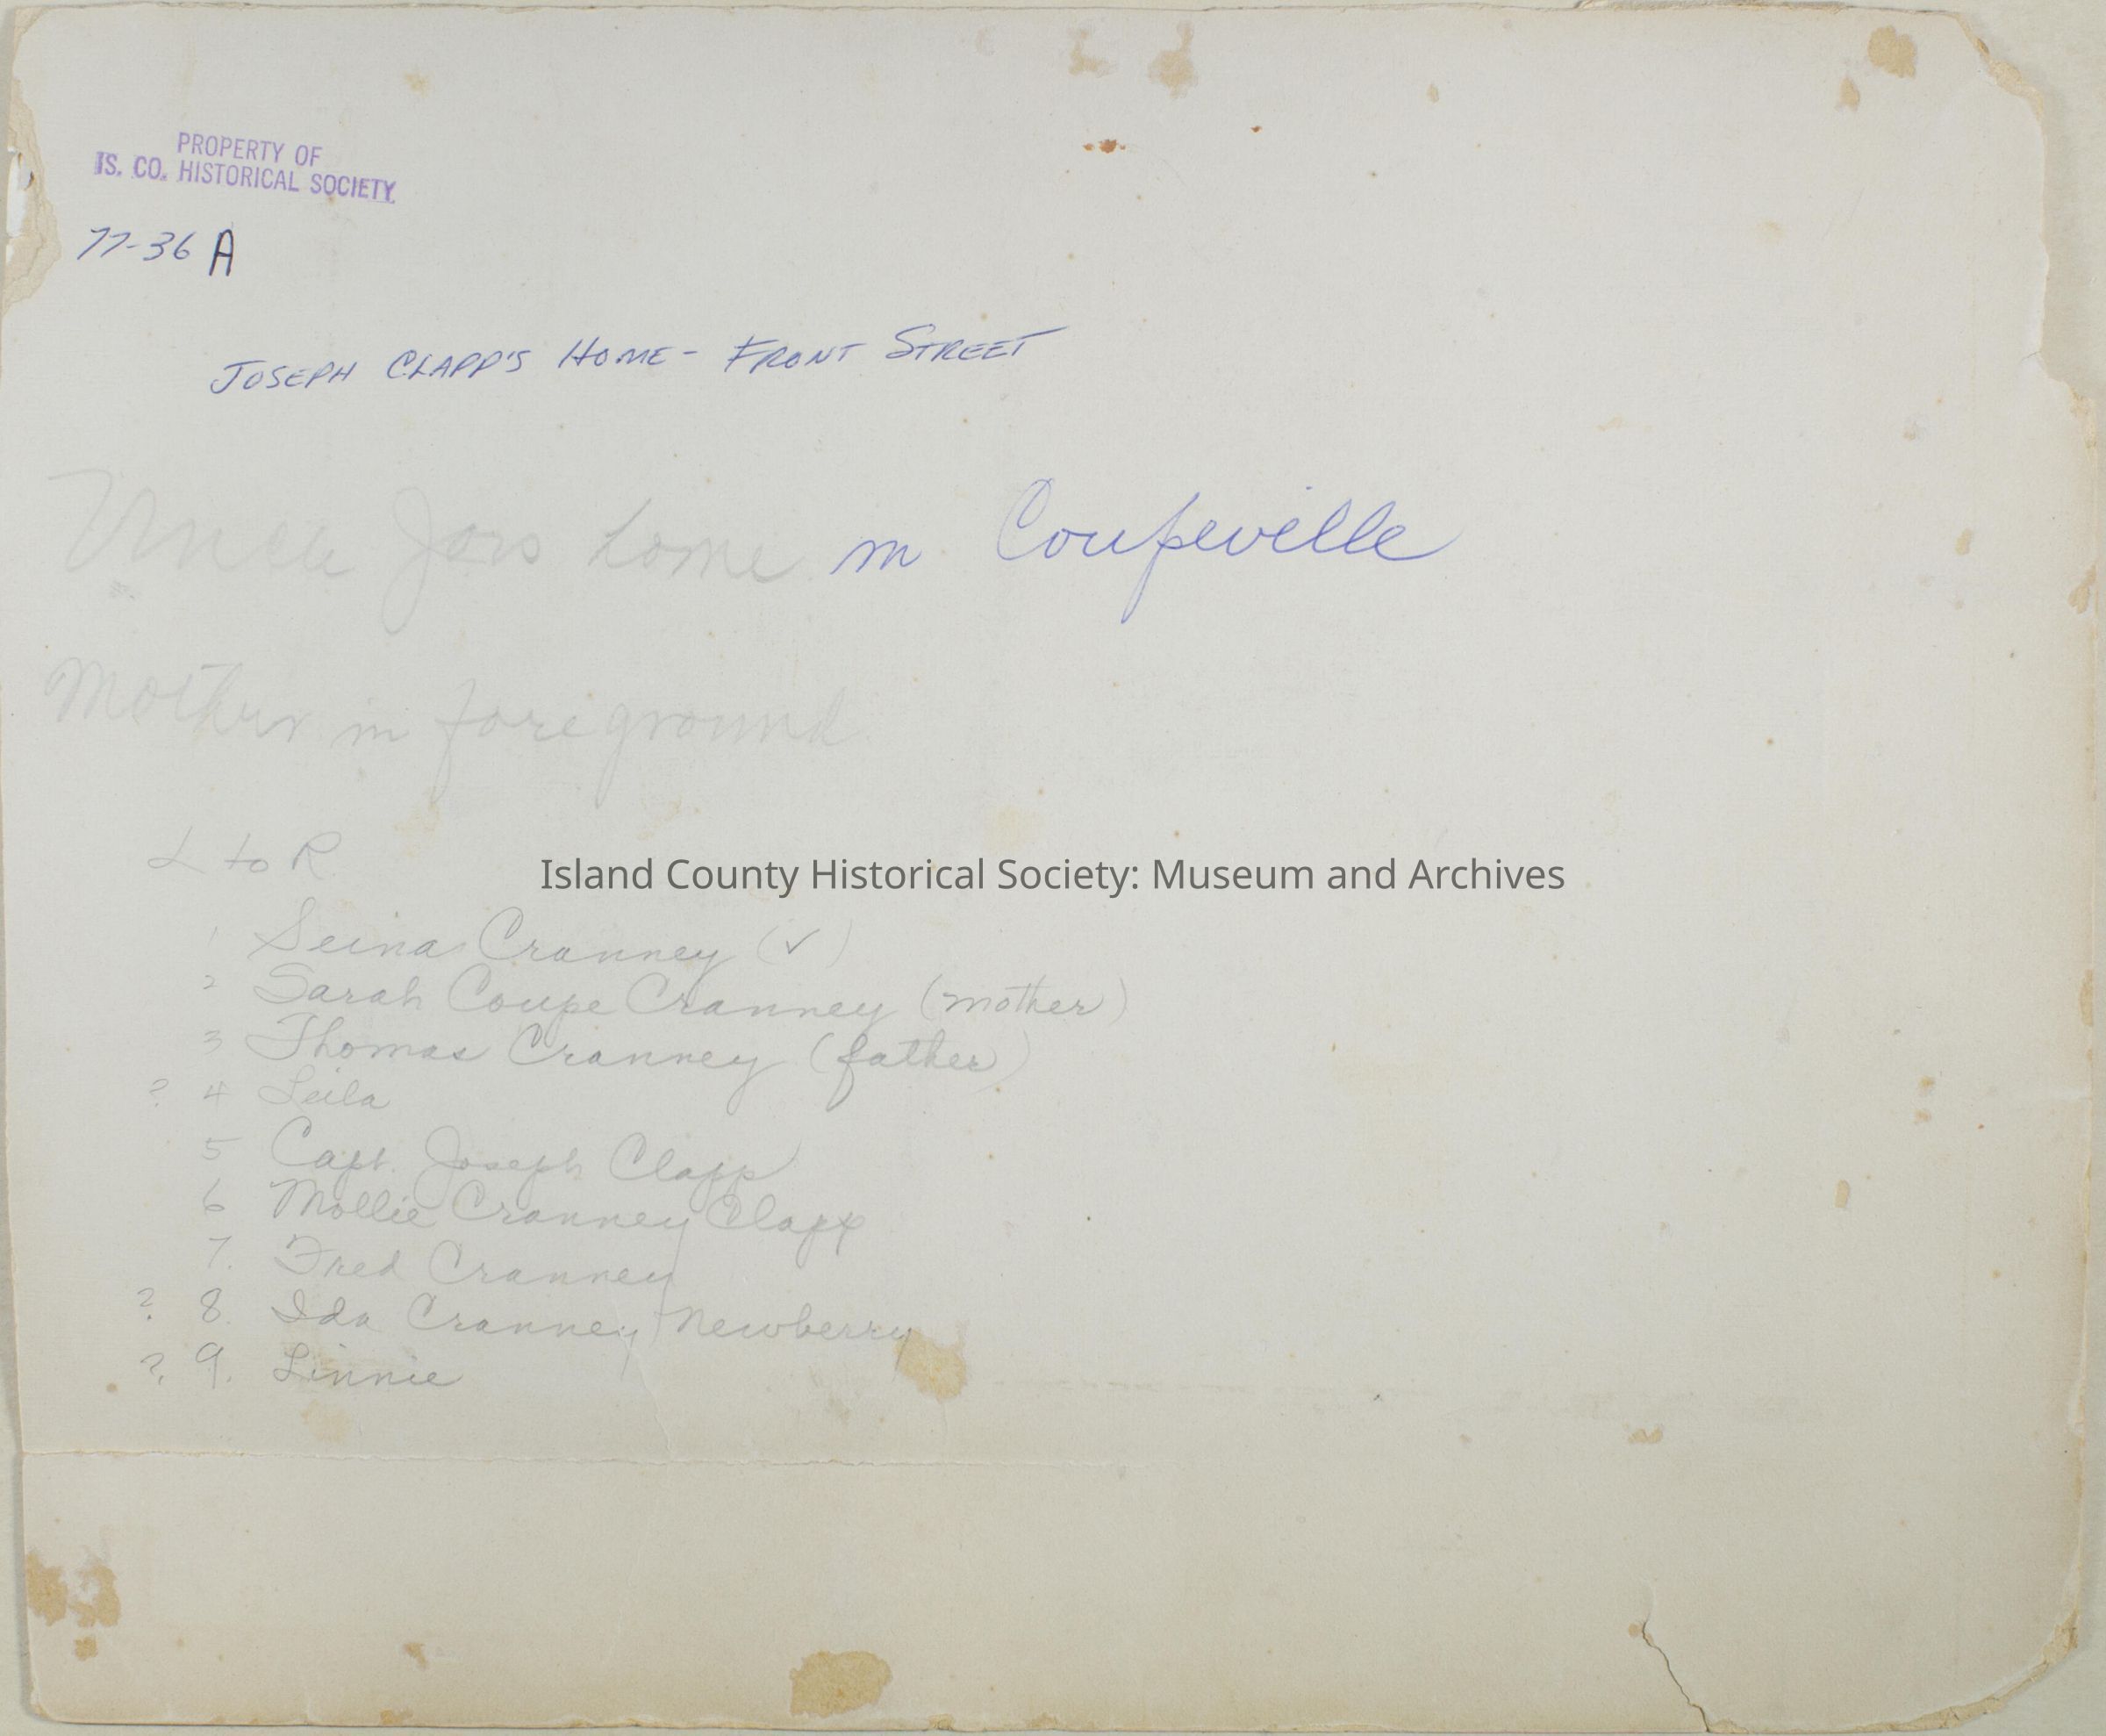 PROPERTY OF
IS. CO. HISTORICAL SOCIETY
77-36 A
JOSEPH CLAPP'S HOME - FRONT STREET
Uncle Joes home in Coupeville
Mother in foreground
L to R
Island County Historical Society: Museum and Archives
1 Seina Cranney (✓)
2 Sarah Coupe Cranney (mother)
3 Thomas Cranney (father)
? 4 Leila
5 Capt. Joseph Clapp
6 Mollie Cranney Clapp
7. Fred Cranney
? 8. Ida Cranney Newberry
? 9. Linnie